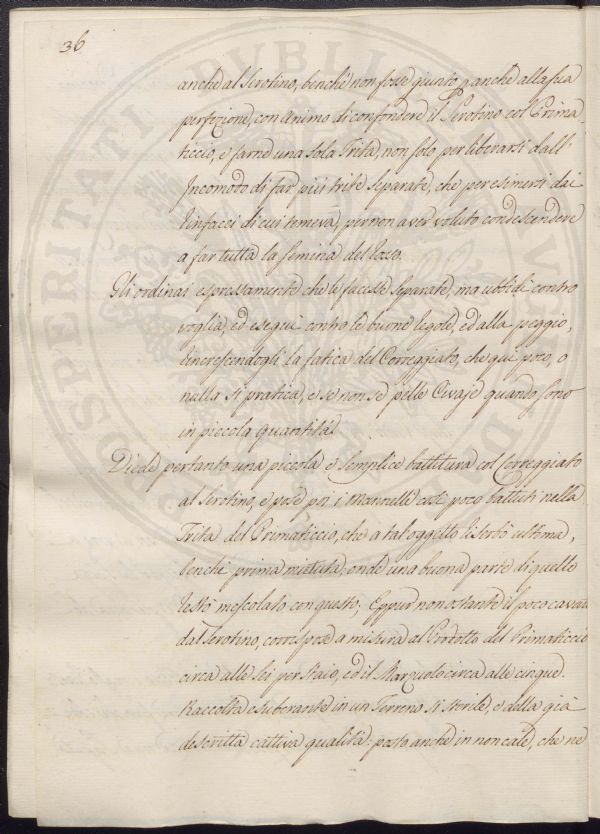 36
anche al Serotino, benchè non fosse giunto anche alla sua
perfezione, con animo di confondere il Serotino col Prima
ticcio, e farne una sola Trita, non solo per liberarsi dall'
Incomodo di far più trite separate, che per esimersi dai
Rinfacci di cui temeva, per non aver voluto condescendere
a far tutta la Semina del
Gli ordinai espressamente che le facesse separate, ma ubbidì contro
voglia, ed eseguì contro le buone regole, ed alla peggio,
rincrescendogli la fatica del Correggiato, che qui poco, o
nulla si pratica, e se non se pelle Civaje quando sono
in piccola quantità.
Diede pertanto una piccola e semplice battitura col Correggiato
al Serotino, e pose poi i Mannelli così poco battuti nella
Trita del Primaticcio, che a tal oggetto si serbò ultima,
benchè prima mietuta; onde una buona parte di quello
restò mescolato con questo; Eppur non ostante il poco cavato
dal Serotino, corrispose a misura al Prodotto del Primaticcio
circa alle sei per staio, ed il Marzuolo circa alle cinque.
Raccolta esuberante in un Terreno sì sterile, e della già
descritta cattiva qualità: posto anche in non cale, che ne
PROSPERITATI PUBLICAE AU